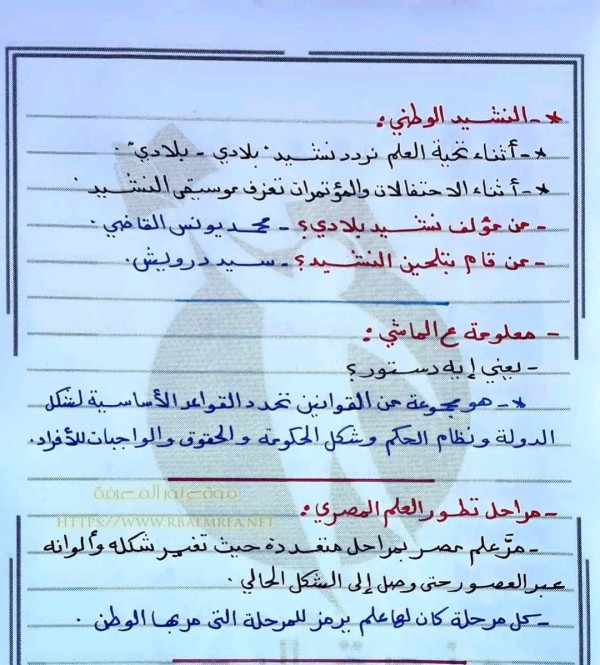 * - النشيد الوطني :
* - أثناء تحية العلم نردد نشيد "بلادي - بلادي" .
* - أثناء الاحتفالات والمؤتمرات تعزف موسيقى النشيد .
- من مؤلف نشيد بلادي؟ - محمد يونس القاضي .
- من قام بتلحين النشيد؟ - سيد درويش .
- معلومة ع الماشي :
- يعني إيه دستور؟
* - هو مجموعة من القوانين تحدد القواعد الأساسية لشكل
الدولة ونظام الحكم وشكل الحكومة والحقوق والواجبات للأفراد.
موقع نور المعرفة
HTTPS://WWW.RBALMRFA.NET
- مراحل تطور العلم المصري :
- مرَّ علم مصر بمراحل متعددة حيث تغير شكله وألوانه
عبر العصور حتى وصل إلى الشكل الحالي .
- كل مرحلة كان لها علم يرمز للمرحلة التى مر بها الوطن .